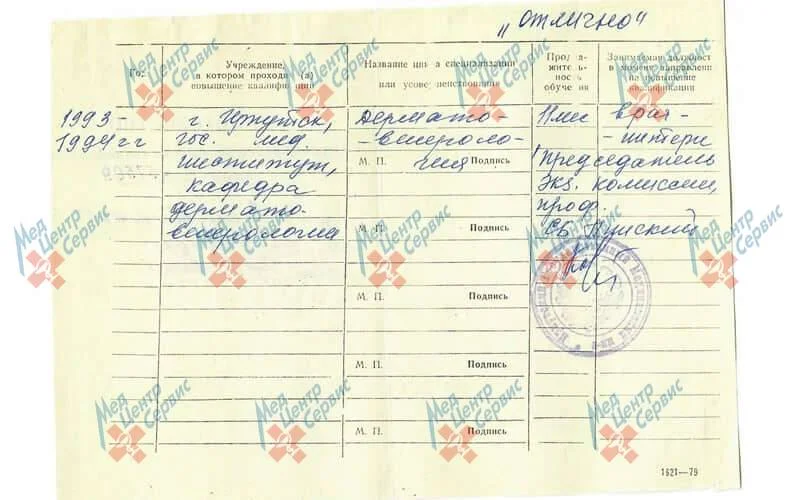 "отлично"
Год
Учреждение,
в котором проходил (а)
повышение квалификации
Название цикла специализации
или усовершенствования
Продолжительность
обучения
Занимаемая должность
в момент направления
на повышение
квалификации
1993-
1994 гг
г. Иркутск,
гос. мед.
институт,
кафедра
дермато-
венерологии
Дермато-
-венероло-
гия
11 мес
врач-
-интерн
М. П. Подпись
Председатель
Экз. комиссии,
проф.
М. П. Подпись
М. П. Подпись
М. П. Подпись
М. П. Подпись
1621—79
Мед Центр Сервис